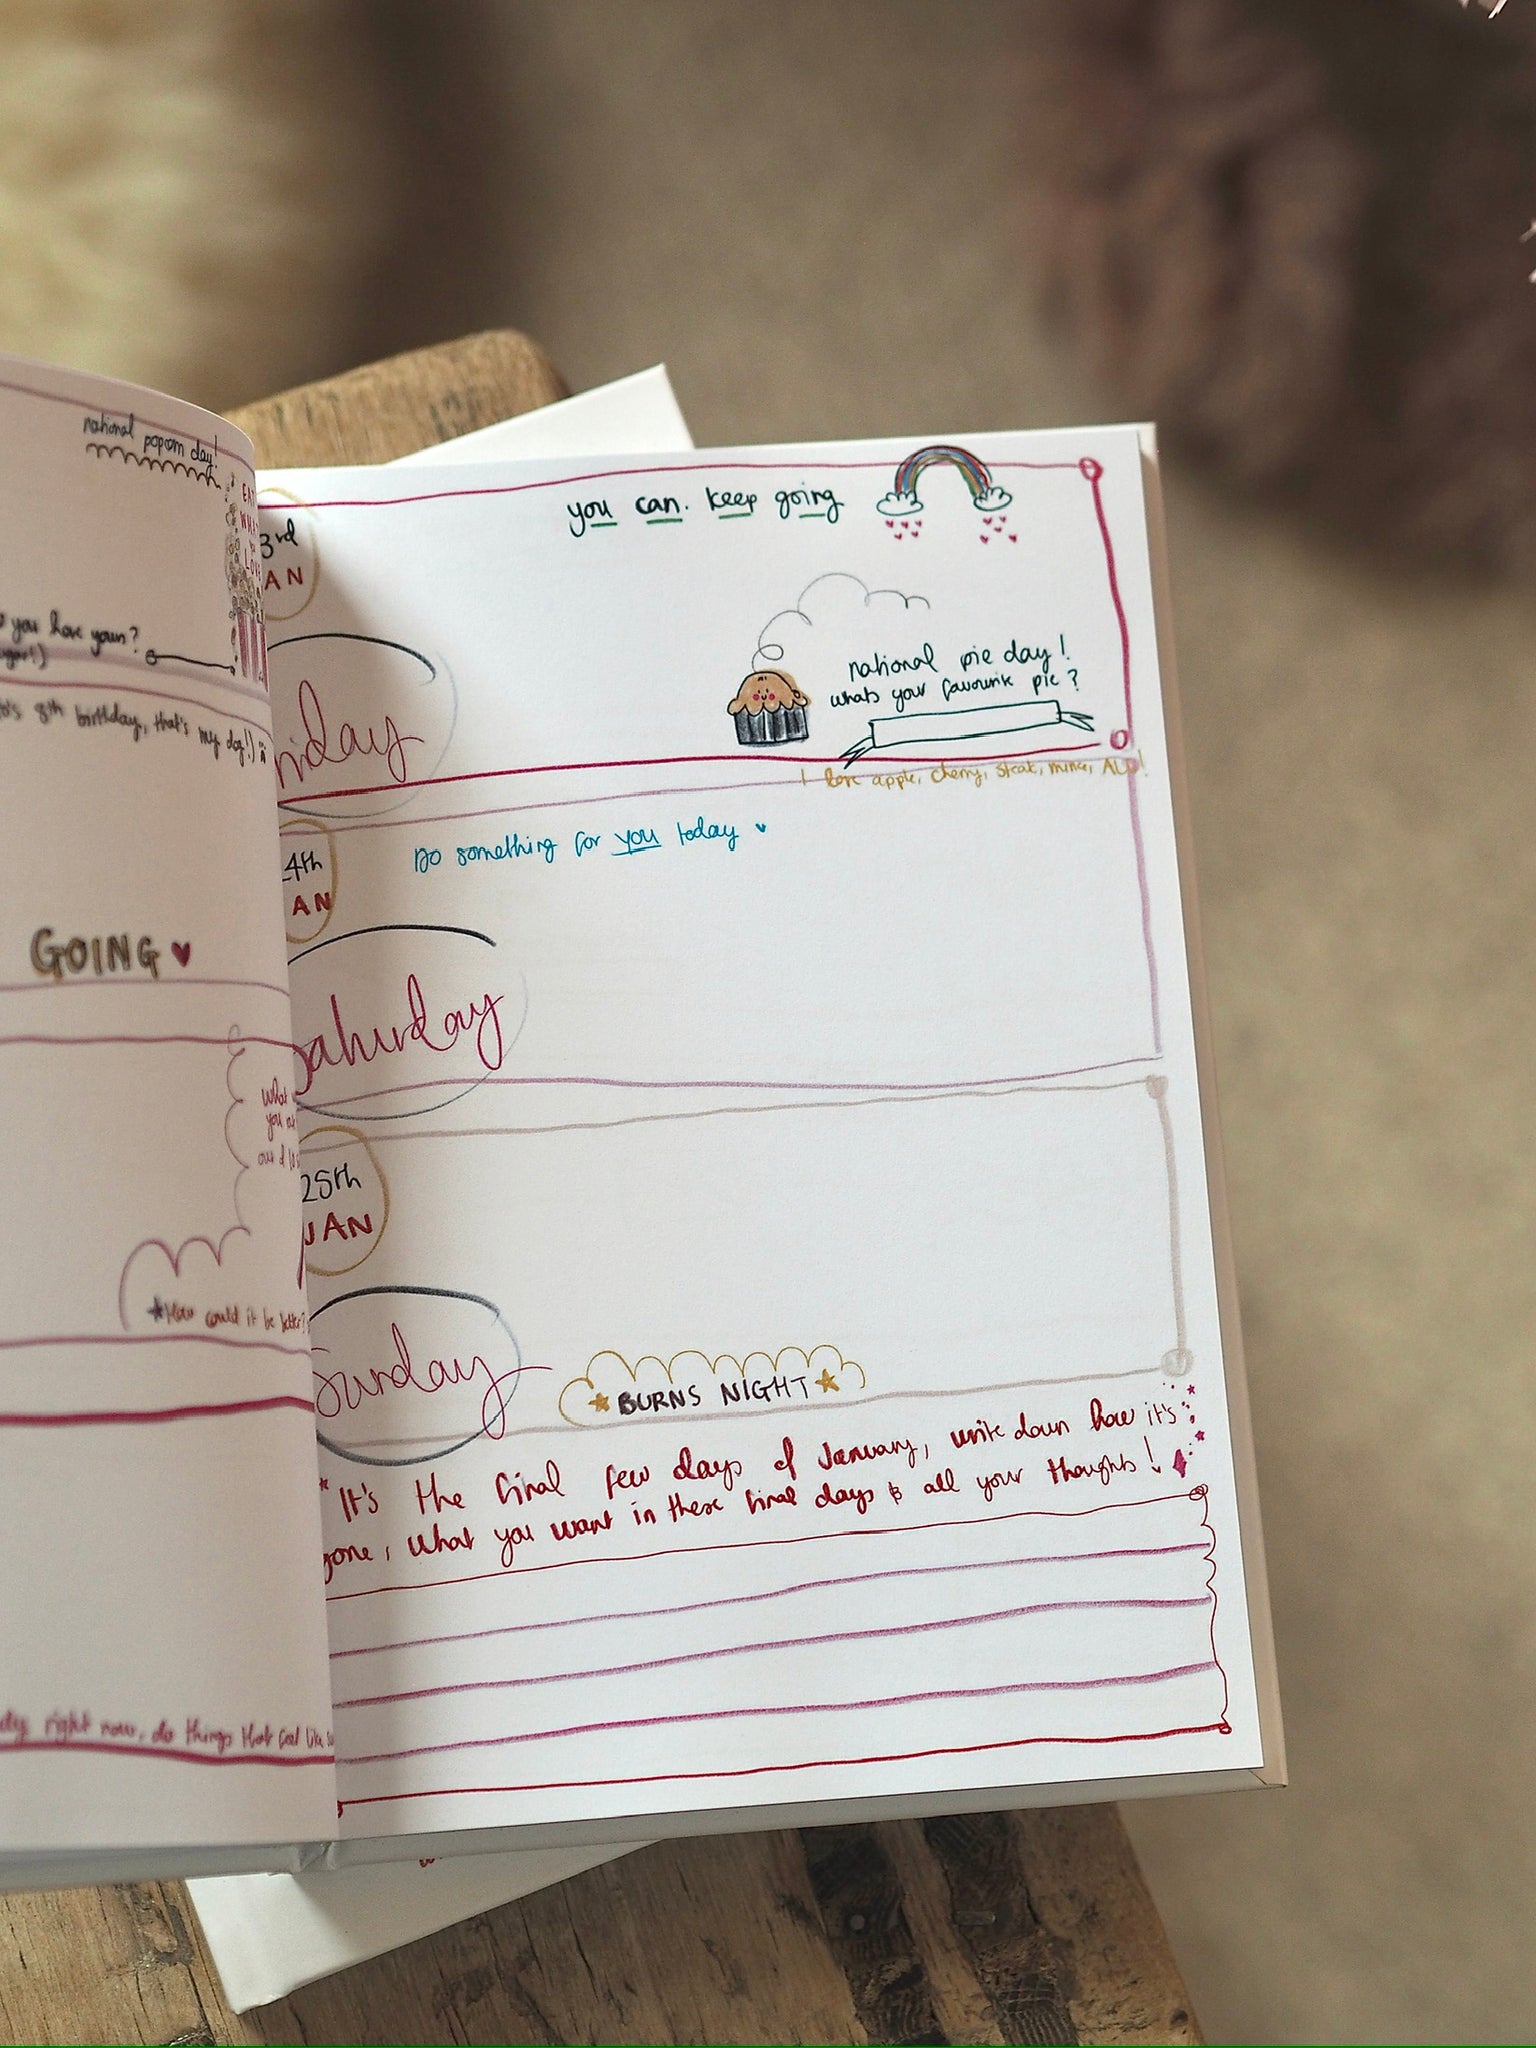 national popcorn day!
EAT
WHAT
LOVE
you have yours?
8th birthday, that's my dog!)
GOING
What
you
How could it be better?
right now, do things that feel like
you can. keep going
3rd
AN
national pie day!
whats your favourite pie?
riday
I love apple, cherry, steak, mince, ALL!
Do something for you today
4th
AN
Saturday
25th
JAN
Sunday
BURNS NIGHT
It's the final few days of January, write down how it's
gone, what you want in these final days & all your thoughts!